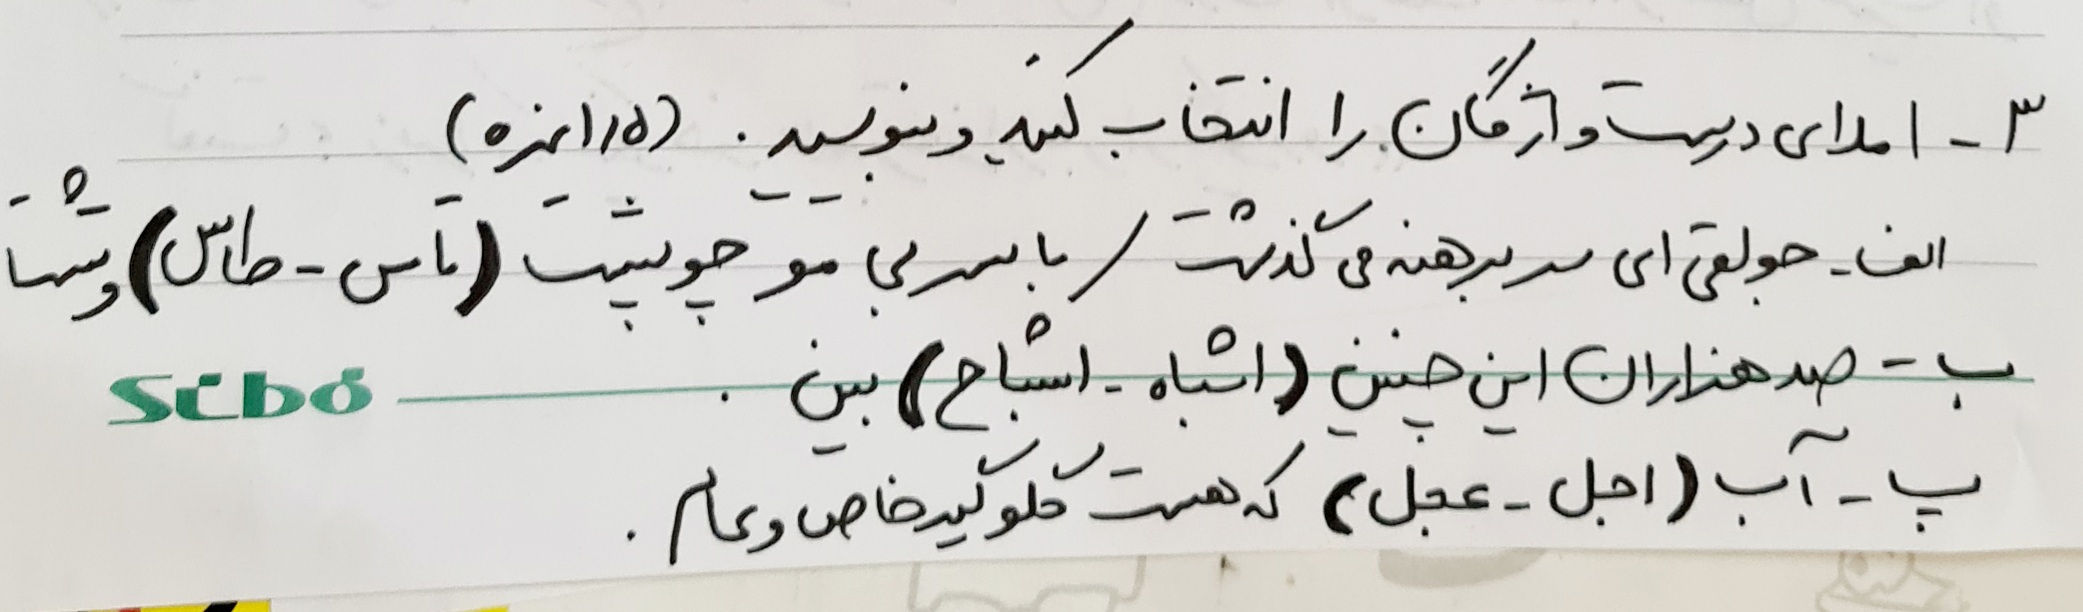 ۳ - املای درست واژگان را انتخاب کنید و بنویسید. (۱/۵ نمره)
الف - جولقی ای سر برهنه می گذشت / با سر بی مو چو پشت (تاس - طاس) وتشت
ب - صد هزاران این چنین (اشباه - اشباح) بین .
پ - آب (اجل - عجل) که هست گلوگیر خاص و عام .